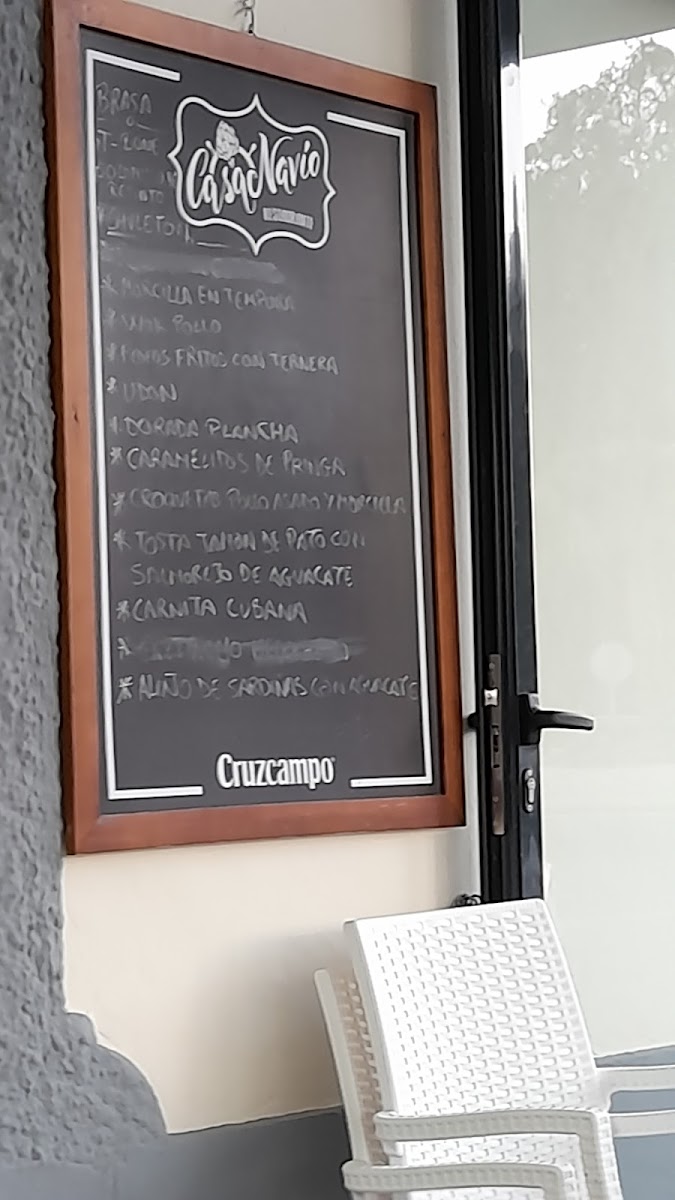 BRASA
T-BONE
CasacNavío
* MORCILLA EN TEMPURA
POLLO
* FRITOS CON TERNERA
* UDON
DORADA PLANCHA
* CARAMELITOS DE PRINGA
* CROQUETAS POLLO ASADO Y MORCILLA
* TOSTA JAMON DE PATO CON
SALMOREJO DE AGUACATE
* CARNITA CUBANA
* ALIÑO DE SARDINAS CON AGUACATE
Cruzcampo